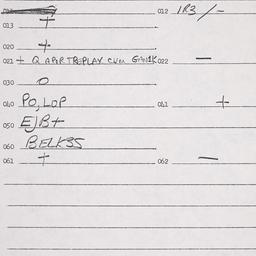 012 IR3/-
013 +
020 +
021 + Q APER TREPLAY CUM 022 —
030 0
040 PO, LOP 041 +
050 EJB+
060 BELK35
061 + 062 —